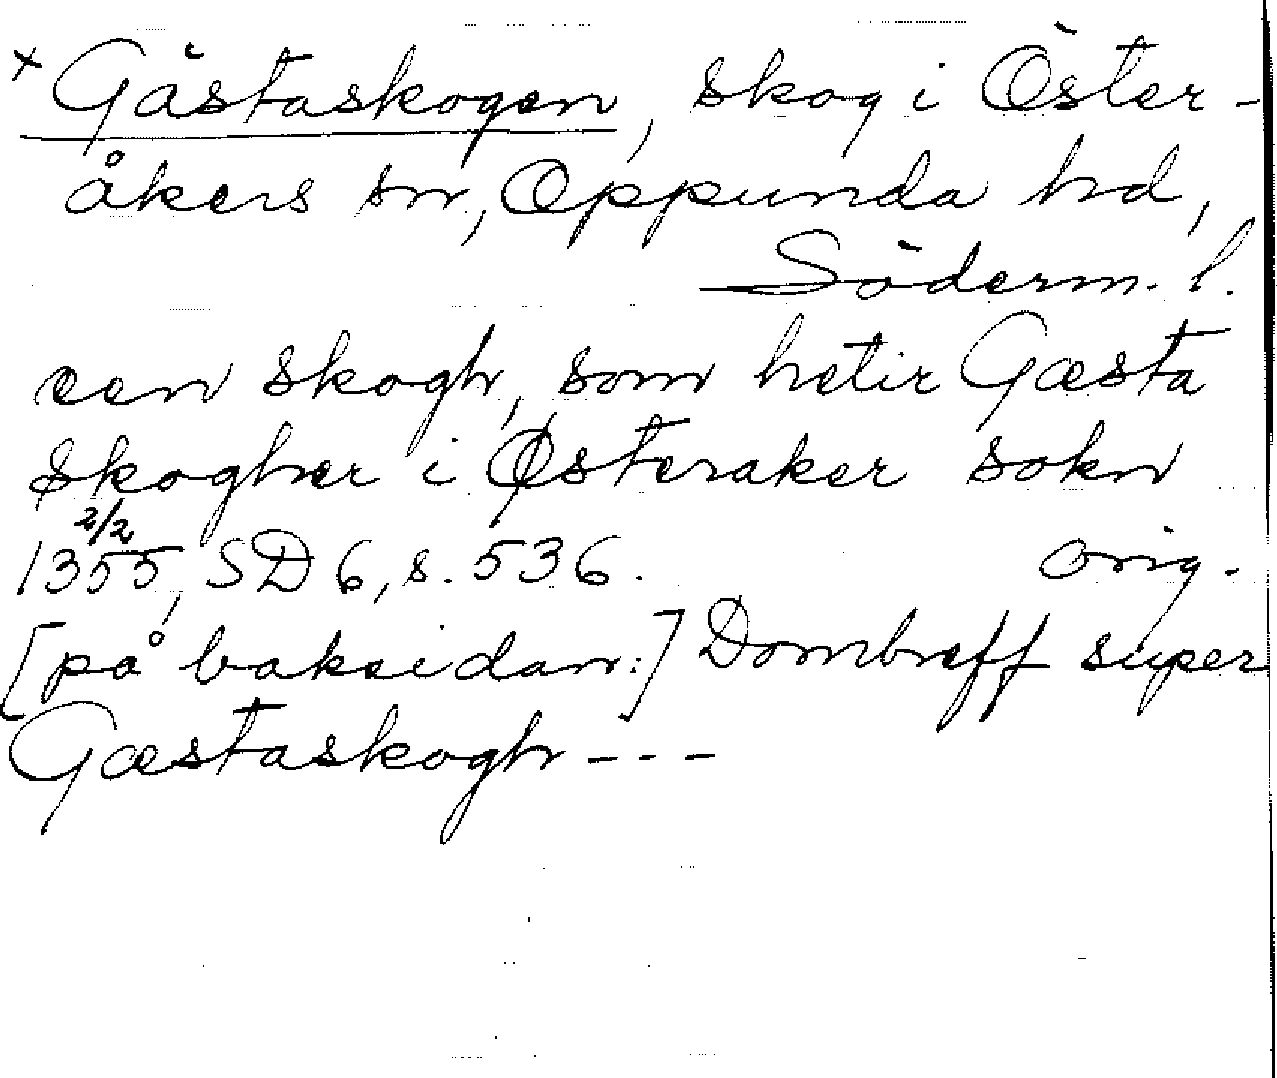 × Gästaskogen, skog i Öster-
åkers sn, Oppunda hd,
Söderm. l.
een skogh, som hetir Gæsta
skogher i Østeraker sokn
1355 2/2, SD 6, s. 536. orig.
[på baksidan:] Dombreff super
Gæstaskogh - - -